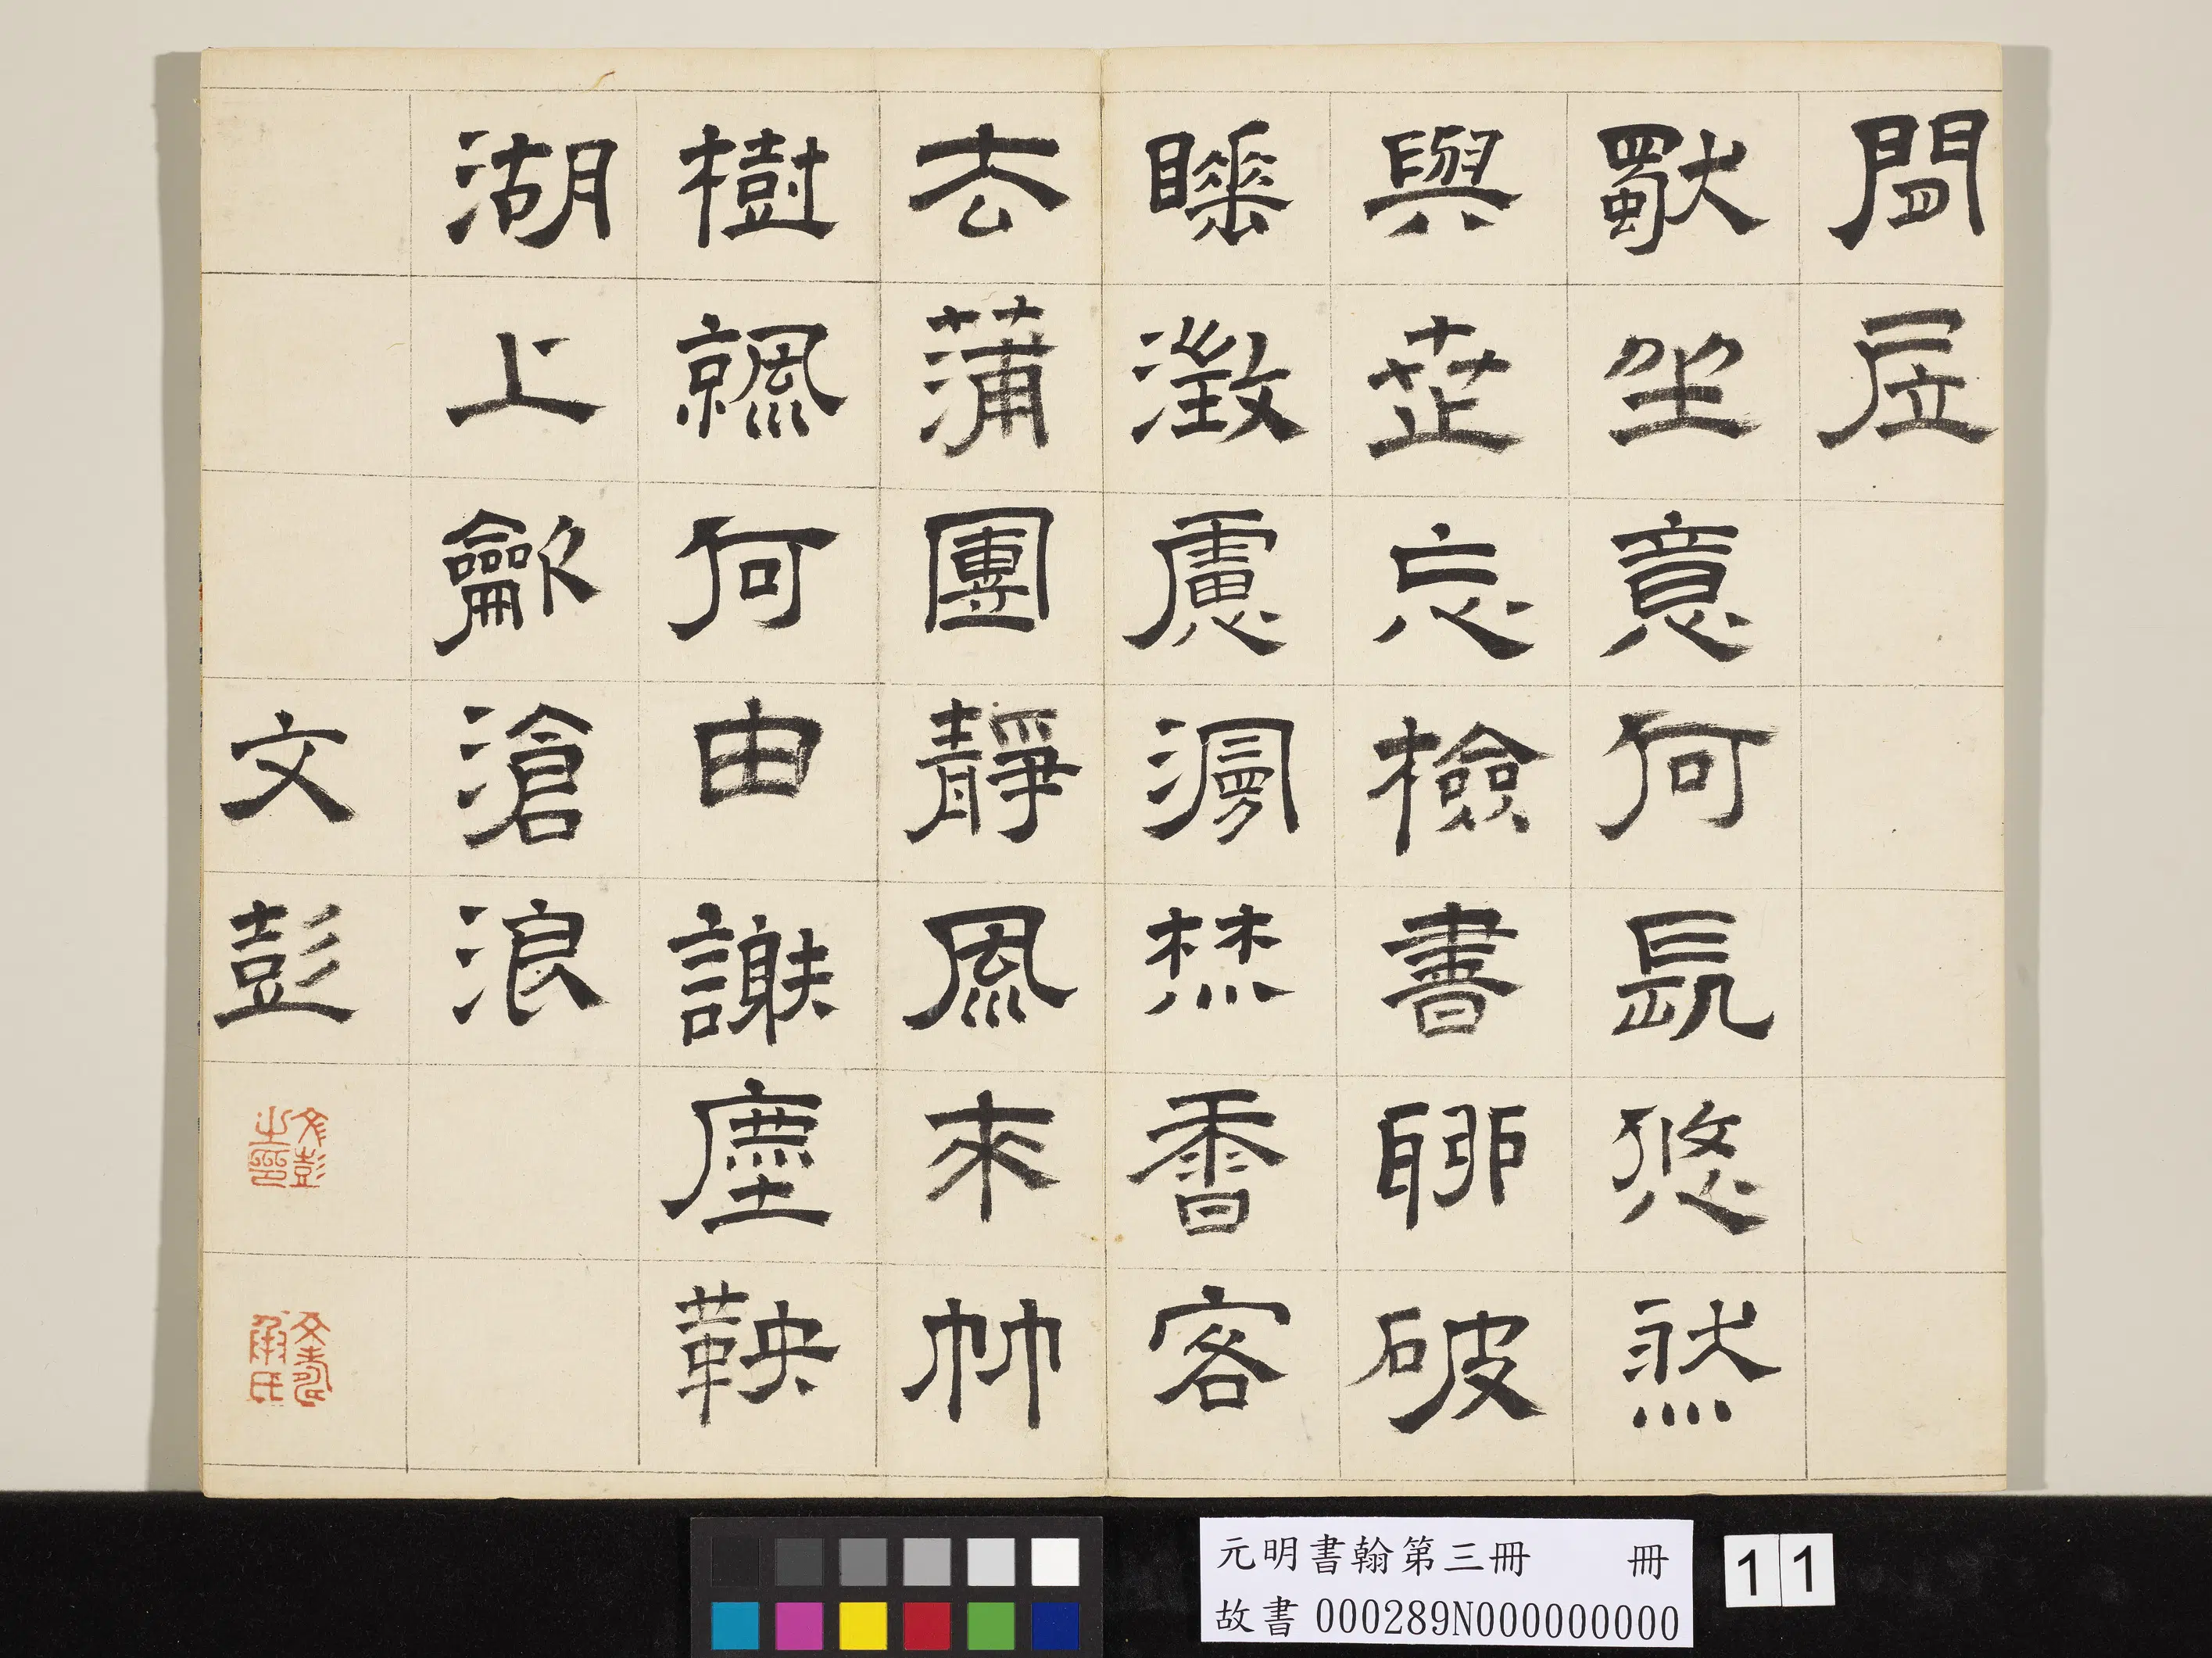 閒居
獨坐意何長悠然
與世忘檢書聊破
睡澂慮漫焚香客
去蒲團靜風來竹
樹䬙何由謝塵鞅
湖上龡滄浪
文彭
文彭之印
文壽承氏
元明書翰第三冊 冊
故書 000289N000000000
11